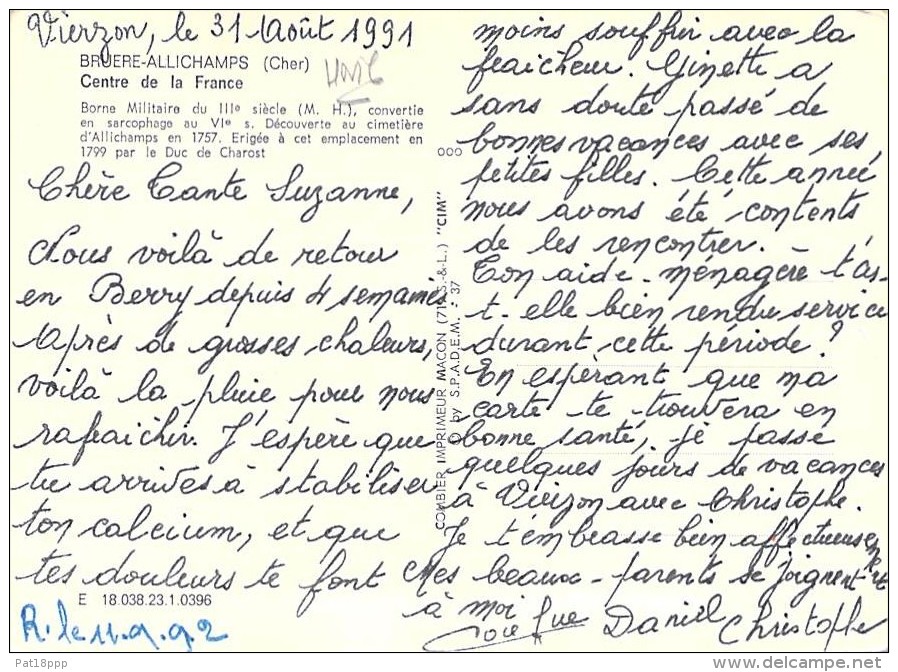 Vierzon, le 31 Août 1991
BRUERE-ALLICHAMPS (Cher)
Centre de la France
Borne Militaire du IIIe siècle (M. H.), convertie
en sarcophage au VIe s. Découverte au cimetière
d'Allichamps en 1757. Erigée à cet emplacement en
1799 par le Duc de Charost
Chère Tante Suzanne,
Nous voilà de retour
en Berry depuis 4 semaines
Après de grosses chaleurs,
voilà la pluie pour nous
rafraichir. J'espère que
tu arrives à stabiliser
ton calcium, et que
tes douleurs te font
E 18.038.23.1.0396
R. le 11.9.92
COMBIER IMPRIMEUR MACON (71 S.-&-L.) "CIM"
© by S.P.A.D.E.M. - 37
moins souffrir avec la
fraicheur. Ginette a
sans doute passé de
bonnes vacances avec ses
petites filles. Cette année
nous avons été contents
de les rencontrer. -
Ton aide-ménagère t'as-
t-elle bien rendu service
durant cette période?
En espérant que ma
carte te trouvera en
bonne santé, je passe
quelques jours de vacances
à Vierzon avec Christophe.
Je t'embrasse bien affectueusement
Mes beaux-parents se joignent
à moi
Daniel
Christophe
Pat18ppp
www.delcampe.net